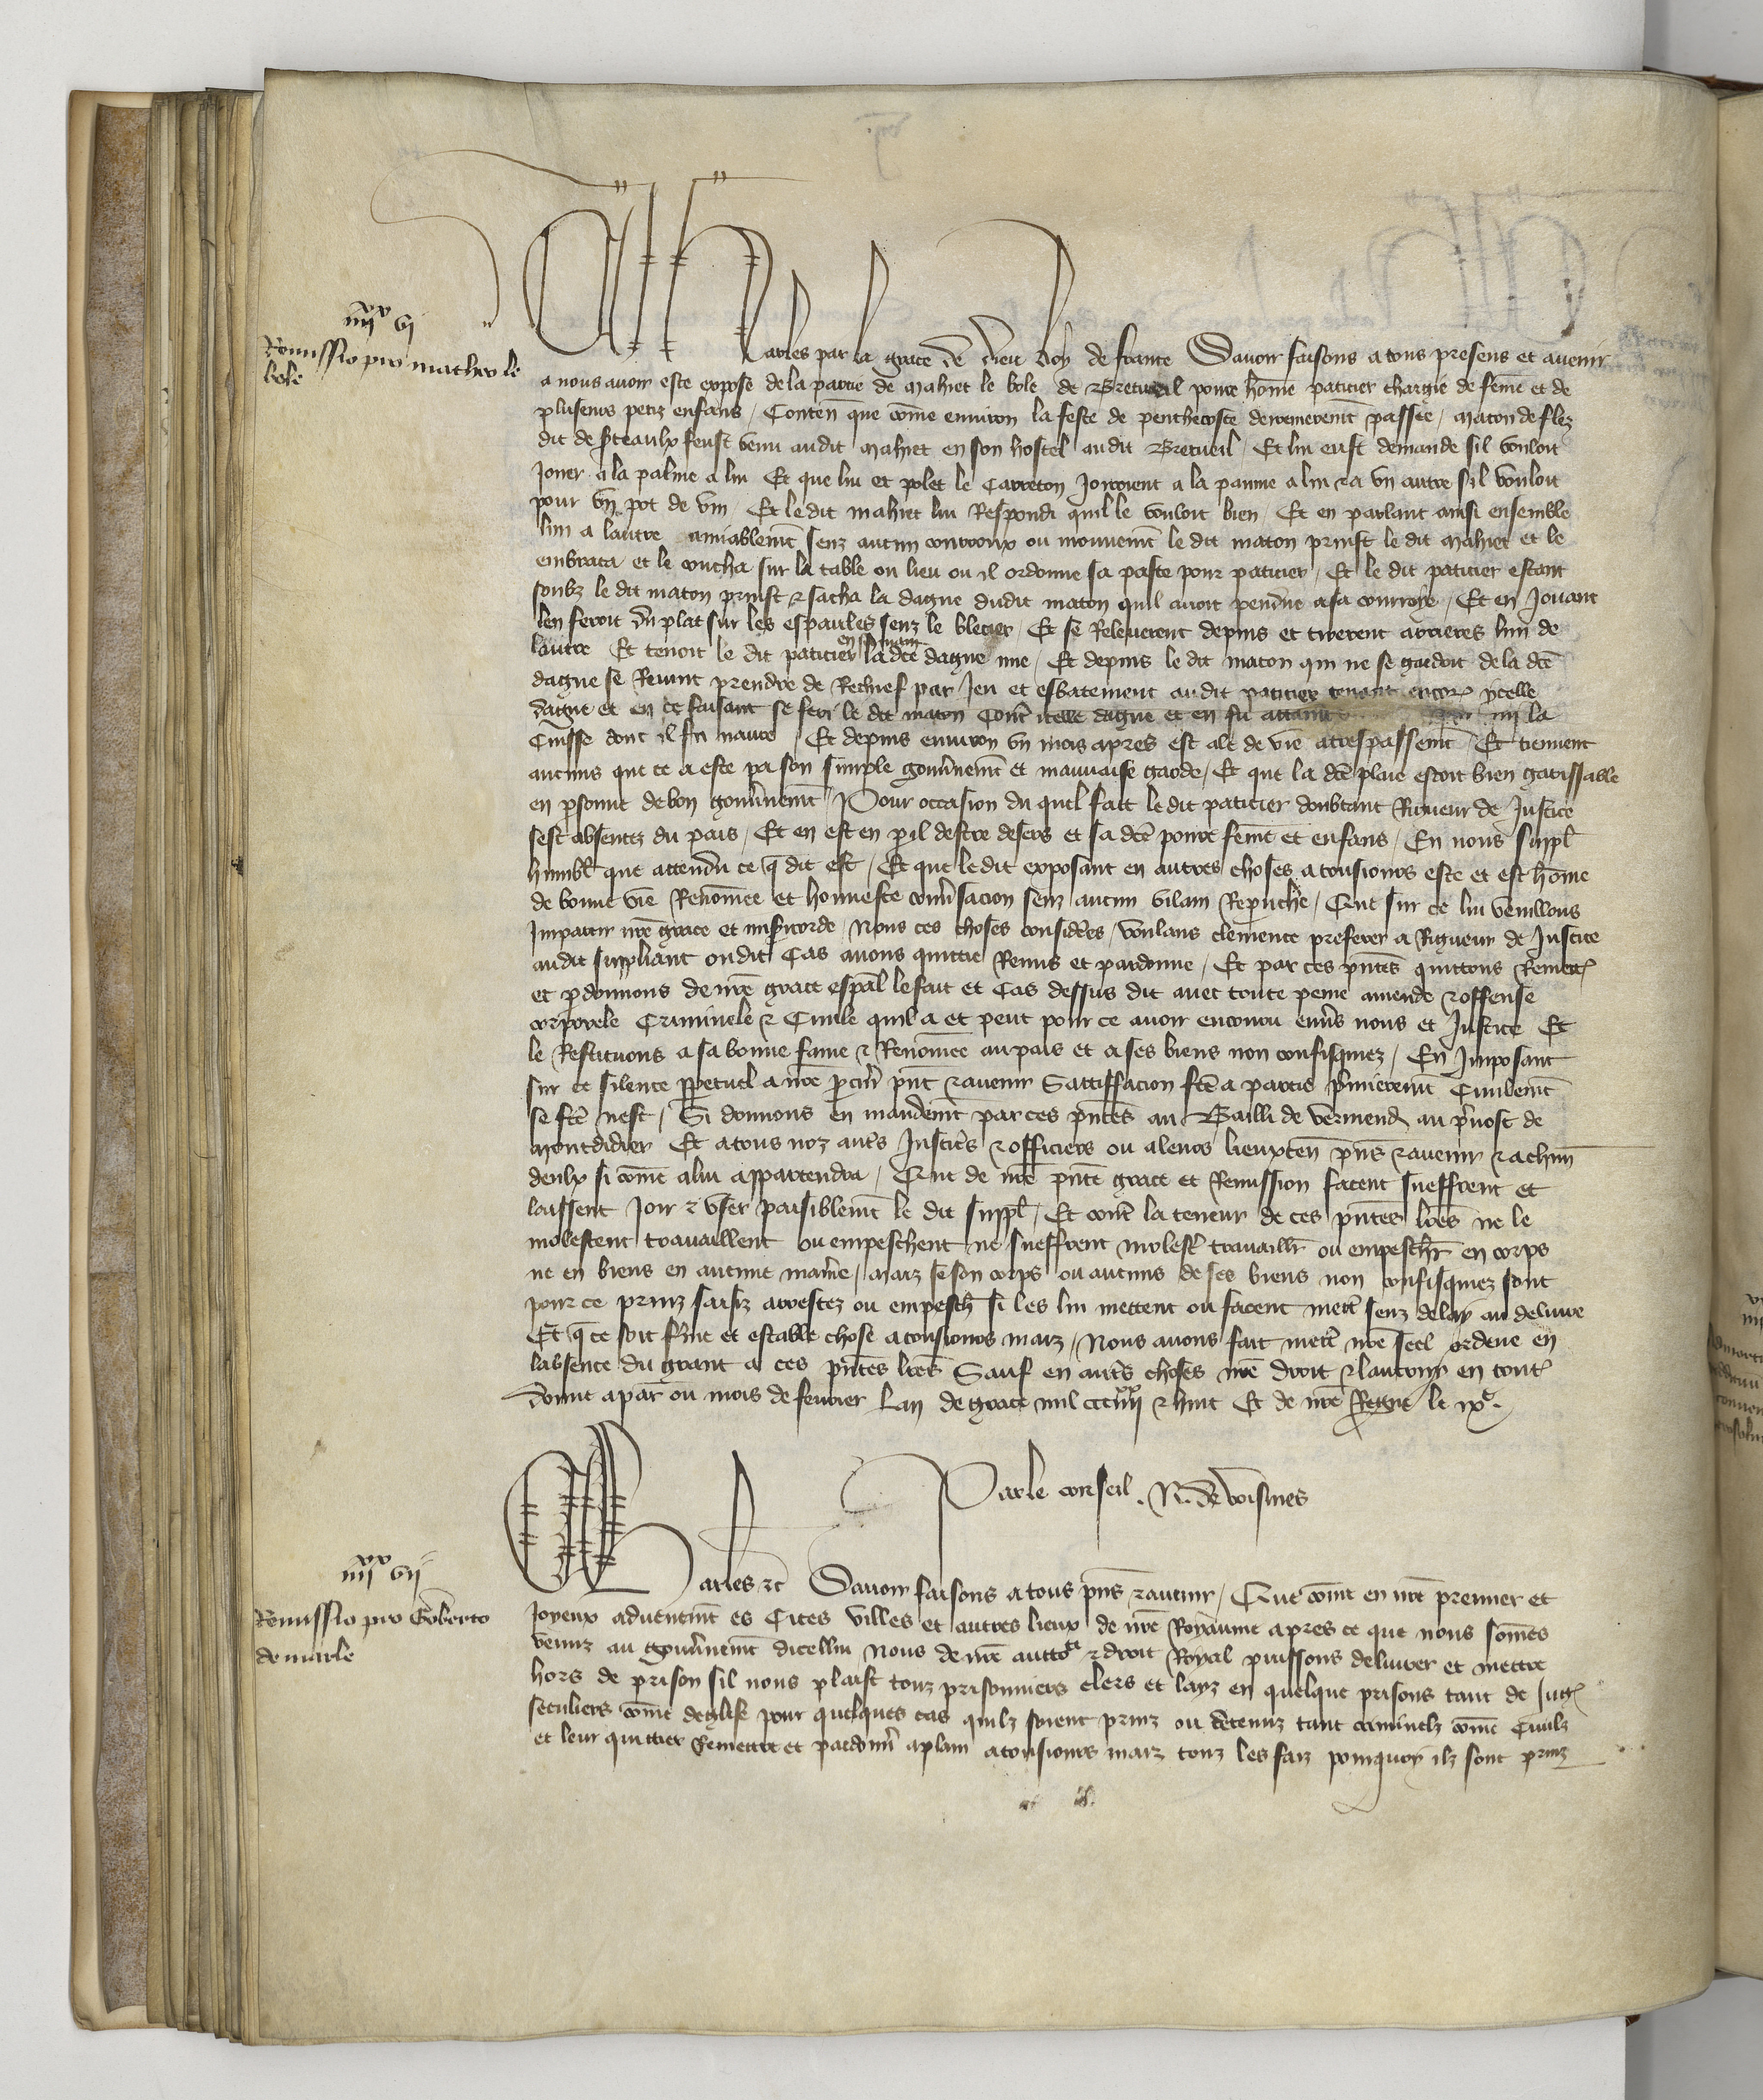 iiiixx vi
Remissio pro matheo le
bole
Charles par la grace de dieu Roy de france Savoir faisons a tous presens et avenir
a nous avoir este expose de la partie de mahiet le bole de Bretueil povre hõme paticier chargie de fẽme et de
pluseurs petiz enfans / Conten que cõme environ la feste de penthecoste derrenieremẽt passee / maton de flez
dit de steaulx feust venu audit mahiet en son hostel audit Bretueil / Et lui eust demande sil vouloit
Jouer a la palme a lui Et que lui et polet le Carreton Jouroient a la paume a lui & a un autre sil vouloit
pour vn pot de vin Et le dit mahiet lui Respondi quil le vouloit bien Et en parlant ainsi ensemble
lun a lautre amiablemẽt senz aucun courroux ou mouvemẽt le dit maton prinst le dit mahiet et le
embraca et le coucha sur la table ou lieu ou il ordonne sa paste pour paticier / Et le dit paticier estant
soubz le dit maton prinst & sacha la dague dudit maton quil avoit pendue a sa courroye / Et en Jouant
len feroit du plat sur les espaules senz le blecier / Et se Releverent depuis et tirerent arrieres lun de
lautre Et tenoit le dit paticier en sa main la dcẽ dague nue / Et depuis le dit maton qui ne se gardoit de la dcẽ
dague se Revint prendre de Rechief par Jeu et esbatement audit paticier tenant encor ycelle
dague et en ce faisant se feri le dit maton Contr icelle dague et en fu attaint en la
Cuisse dont il fu navre / Et depuis environ vn mois apres est ale de vie a trespassemẽt / Et tiennent
aucuns que ce a este par son simple gouvnemẽt et mauvaise garde / Et que la dcẽ plaie estoit bien garissable
en psonne de bon gouvnemẽt / Pour occasion du quel fait le dit paticier doubtant Rigueur de Justice
sest absentez du pais / Et en est en pil destre desers et sa dcẽ povre femẽ et enfans / En nous suppl
humbl que attendu ce q̃ dit est / Et que le dit exposant en autres choses a tousiours este et est hõme
de bonne vie Renõmee et honneste convsacion senz aucun vilain Reprouche / Que sur ce lui veuillons
Impartir nrẽ grace et misicorde / Nous ces choses considerees / voulans clemence preferer a Rigueur de Justice
audit suppliant ou dit Cas avons quittie Remis et pardonne / Et par ces pñtes quittons Remett
et pdonnons de nrẽ grace espãl le fait et Cas dessus dit avec toute peine amende & offense
corporele Criminele & Civile quil a et peut pour ce avoir encouru envs nous et Justice Et
le Restituons a sa bonne fame & Renõmee au pais et a ses biens non confisquiez / En Imposant
sur ce silence ppetuel a nrẽ pcur pñt & avenir Sattiffacion fcẽ a partie pmieremẽt Civilemẽt
se fcẽ nest / Si donnons en mandemẽt par ces pñtes au Bailli de vermend au pvost de
montdidier Et a tous noz autrs Justicrs & officiers ou a leurs lieuxten pñs & avenir & a chũn
deulx si cõme a lui appartendra / Que de nrẽ pñte grace et Remission facent sueffrent et
laissent Joir & user paisiblemẽt le dit suppl / Et contr la teneur de ces pñtes lres ne le
molestent travaillent ou empeschent ne sueffrent molestr travaillr ou empeschr en corps
ne en biens en aucune manie / maiz se son corps ou aucuns de ses biens non confisquiez sont
pour ce prinz saisiz arrestez ou empesch si les lui mettent ou facent mettr senz delay au delivre
Et q̃ ce soit fme et estable chose a tousiours maiz / Nous avons fait mettr nrẽ seel ordene en
labsence du grant a ces pñtes lres Sauf en autrs choses nrẽ droit & lautruy en tout
donne a par ou mois de fevrier Lan de grace mil ccciiiixx & huit Et de nrẽ Regne le ixe.
Par le conseil . N. de voisines
iiiixx vii
Remissio pro Goberto
de marle
Charles &c Savoir faisons a tous pñs & avenir / Que cõme en nrẽ premier et
Joyeux advenemẽt es Cites villes et autres lieux de nrẽ Royaume apres ce que nous sõmes
venuz au gouvnemẽt dicellui Nous de nrẽ auttota & droit Royal puissons delivrer et mettre
hors de prison sil nous plaist touz prisonniers clers et layz en quelque prisons tant de Jug
seculiers cõme deglise pour quelques cas quilz soient prinz ou detenuz tant criminelz cõme Civilz
et leur quittier Remettre et pardonñ a plain a tousiours maiz touz les faiz pourquoy ilz sont prinz